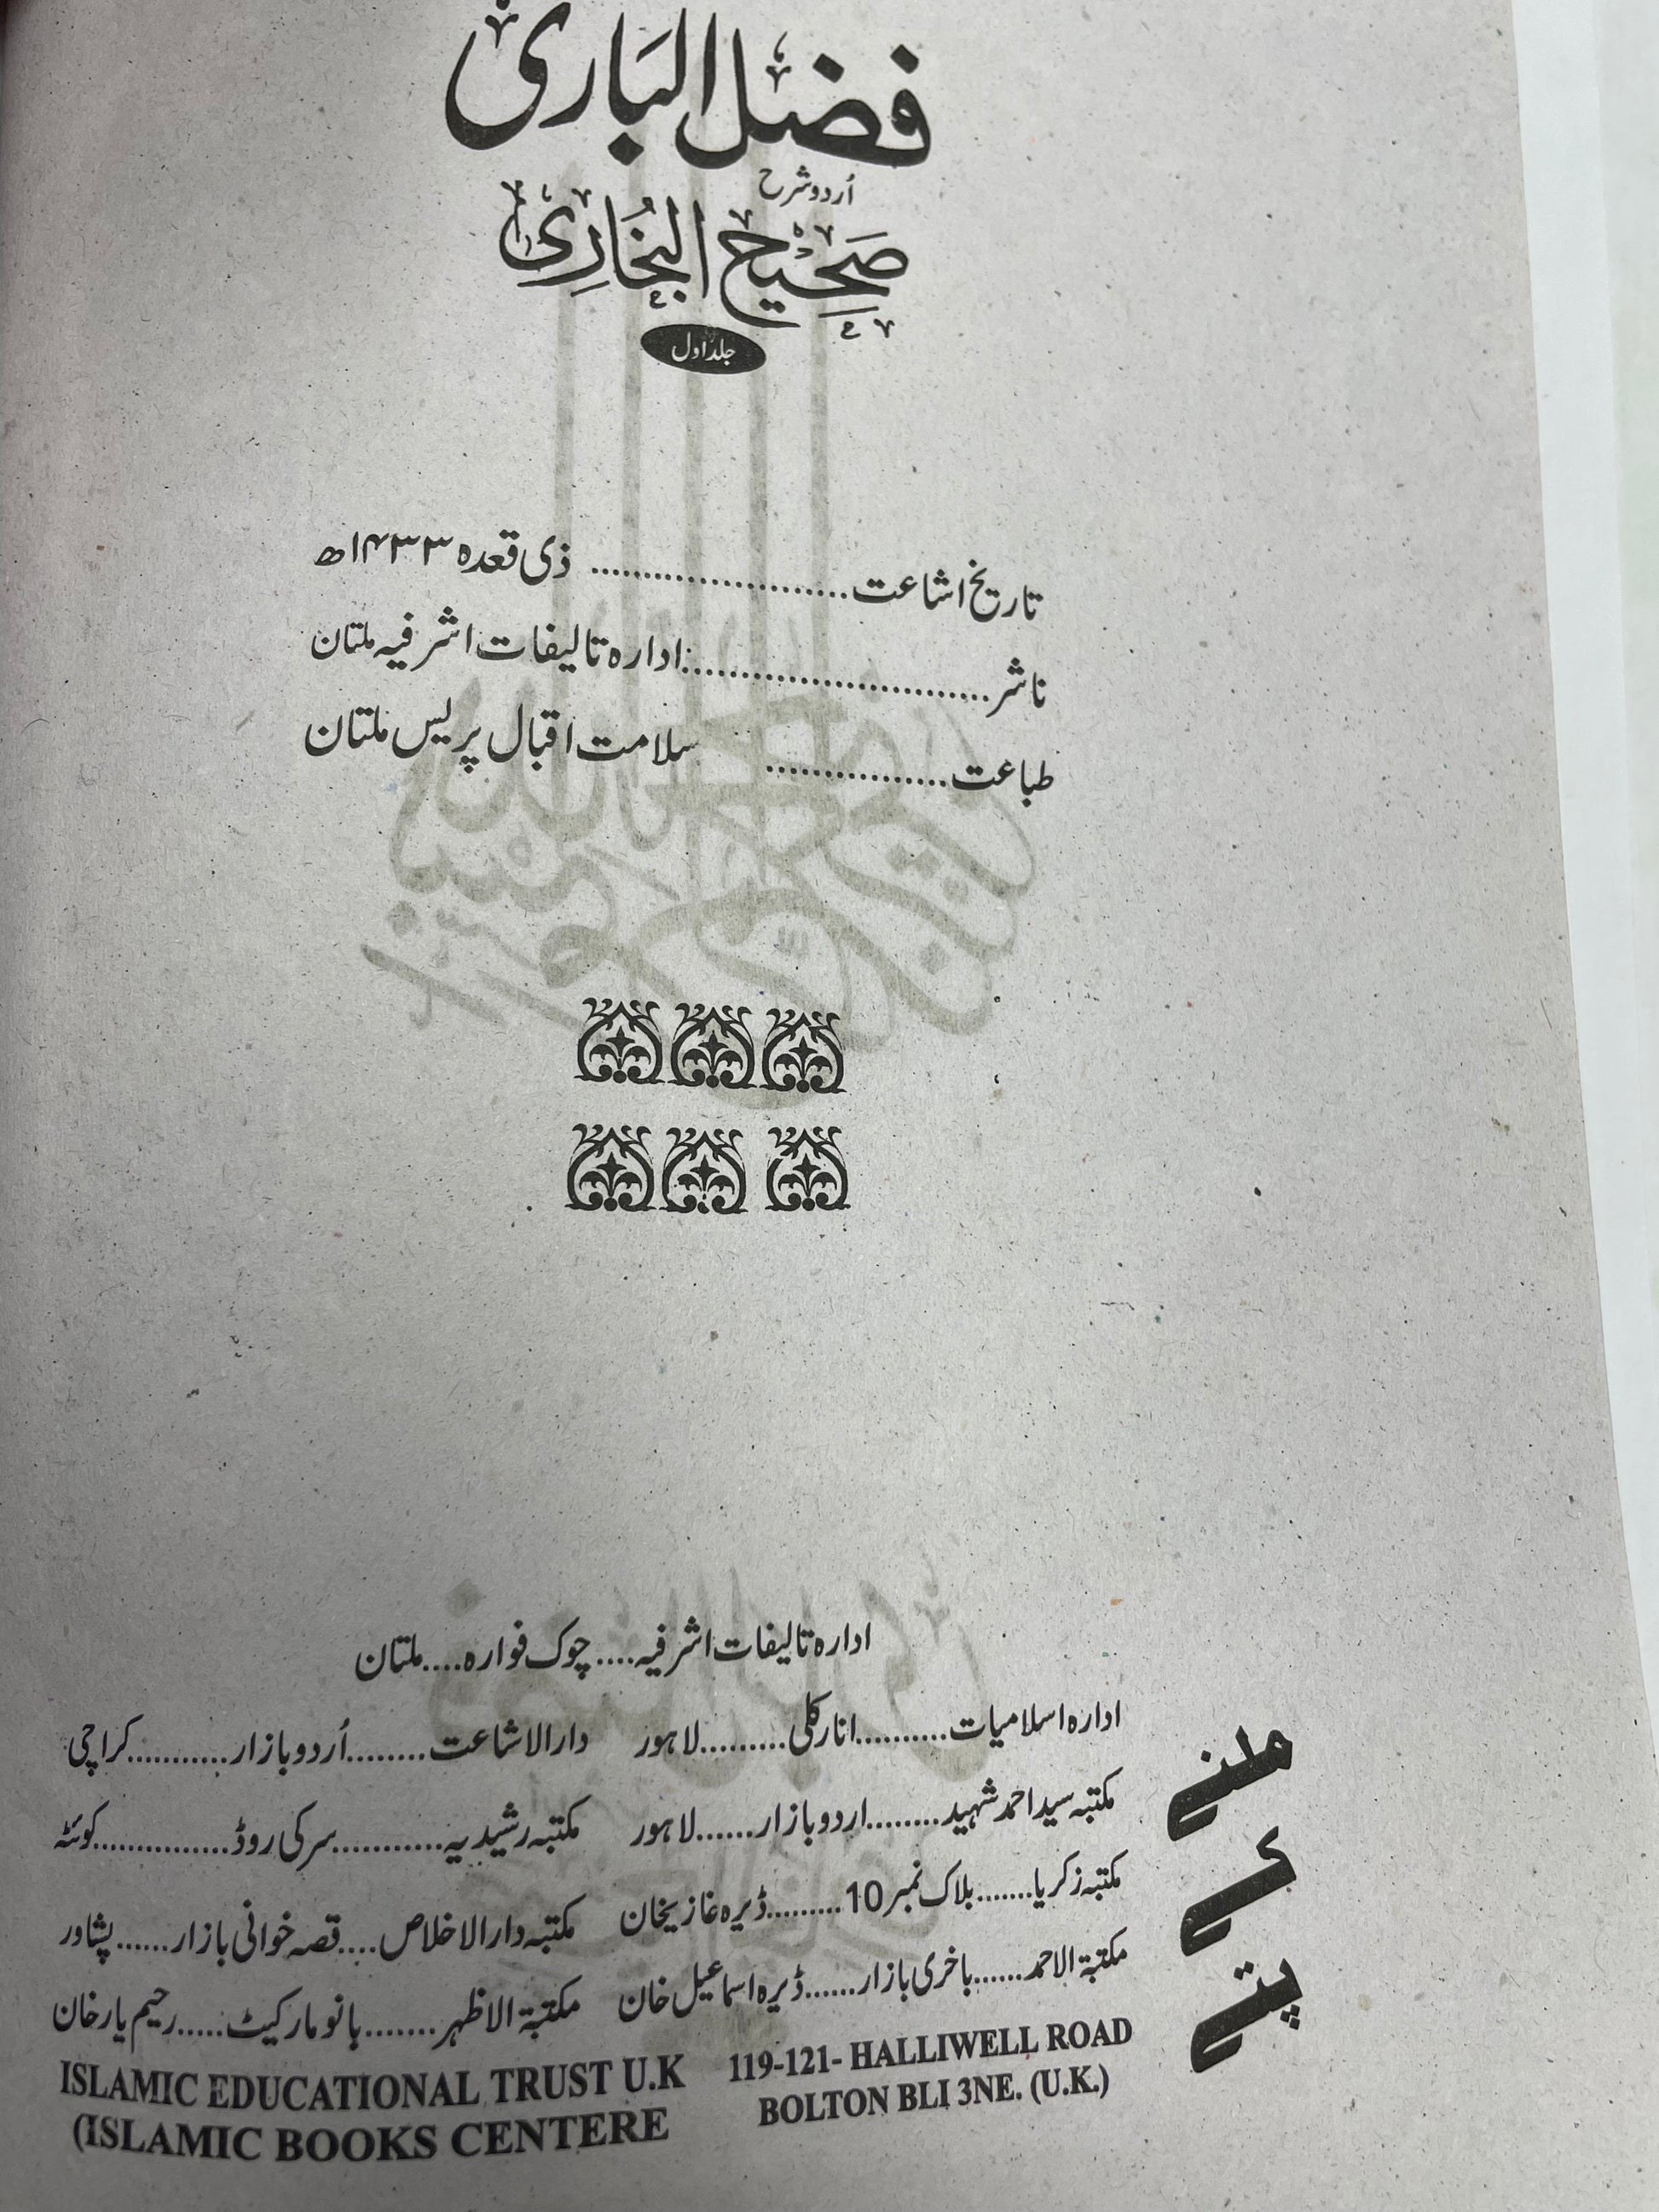 فضل الباری
اُردو شرح
صَحِيْح البُخَارِي
جلد اول
تاریخ اشاعت.................... ذی قعدہ ۱۴۳۳ھ
ناشر.........................ادارہ تالیفات اشرفیہ ملتان
طباعت................ سلامت اقبال پریس ملتان
ادارہ تالیفات اشرفیہ....چوک فوارہ....ملتان
ملنے کے پتے
ادارہ اسلامیات..........انارکلی.........لاہور دارالاشاعت........اُردو بازار...........کراچی
مکتبہ سید احمد شہید........اردو بازار......لاہور مکتبہ رشیدیہ...........سرکی روڈ...............کوئٹہ
مکتبہ زکریا.......بلاک نمبر 10.........ڈیرہ غازیخان مکتبہ دارالاخلاص....قصہ خوانی بازار......پشاور
مکتبۃ الاحمد......باخری بازار......ڈیرہ اسماعیل خان مکتبۃ الاظہر.......بانو مارکیٹ.....رحیم یار خان
ISLAMIC EDUCATIONAL TRUST U.K 119-121- HALLIWELL ROAD
(ISLAMIC BOOKS CENTERE BOLTON BLI 3NE. (U.K.)